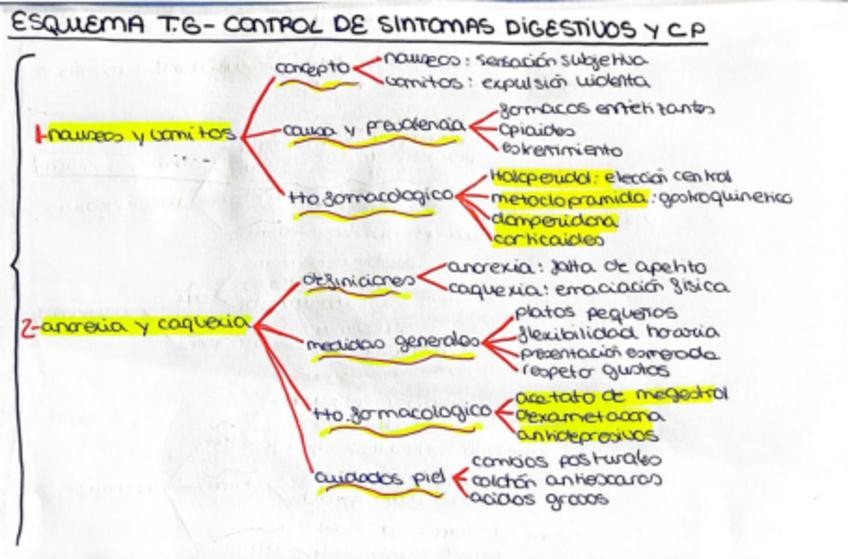 ESQUEMA T.6- CONTROL DE SINTOMAS DIGESTIVOS Y C.P
1-nauseas y vomitos
concepto
nauseas: sensación subjetiva
vomitos: expulsión violenta
causa y prevalencia
farmacos emetizantes
opioides
estreñimiento
tto farmacologico
Haloperidol: elección central
metoclopramida: gastroquinetico
domperidona
corticoides
2-anorexia y caquexia
definiciones
anorexia: falta de apetito
caquexia: emaciación física
medidas generales
platos pequeños
flexibilidad horaria
presentación esmerada
respetar gustos
tto. farmacologico
acetato de megestrol
dexametasona
antidepresivos
cuidados piel
cambios posturales
colchón antiescaras
acidos grasos